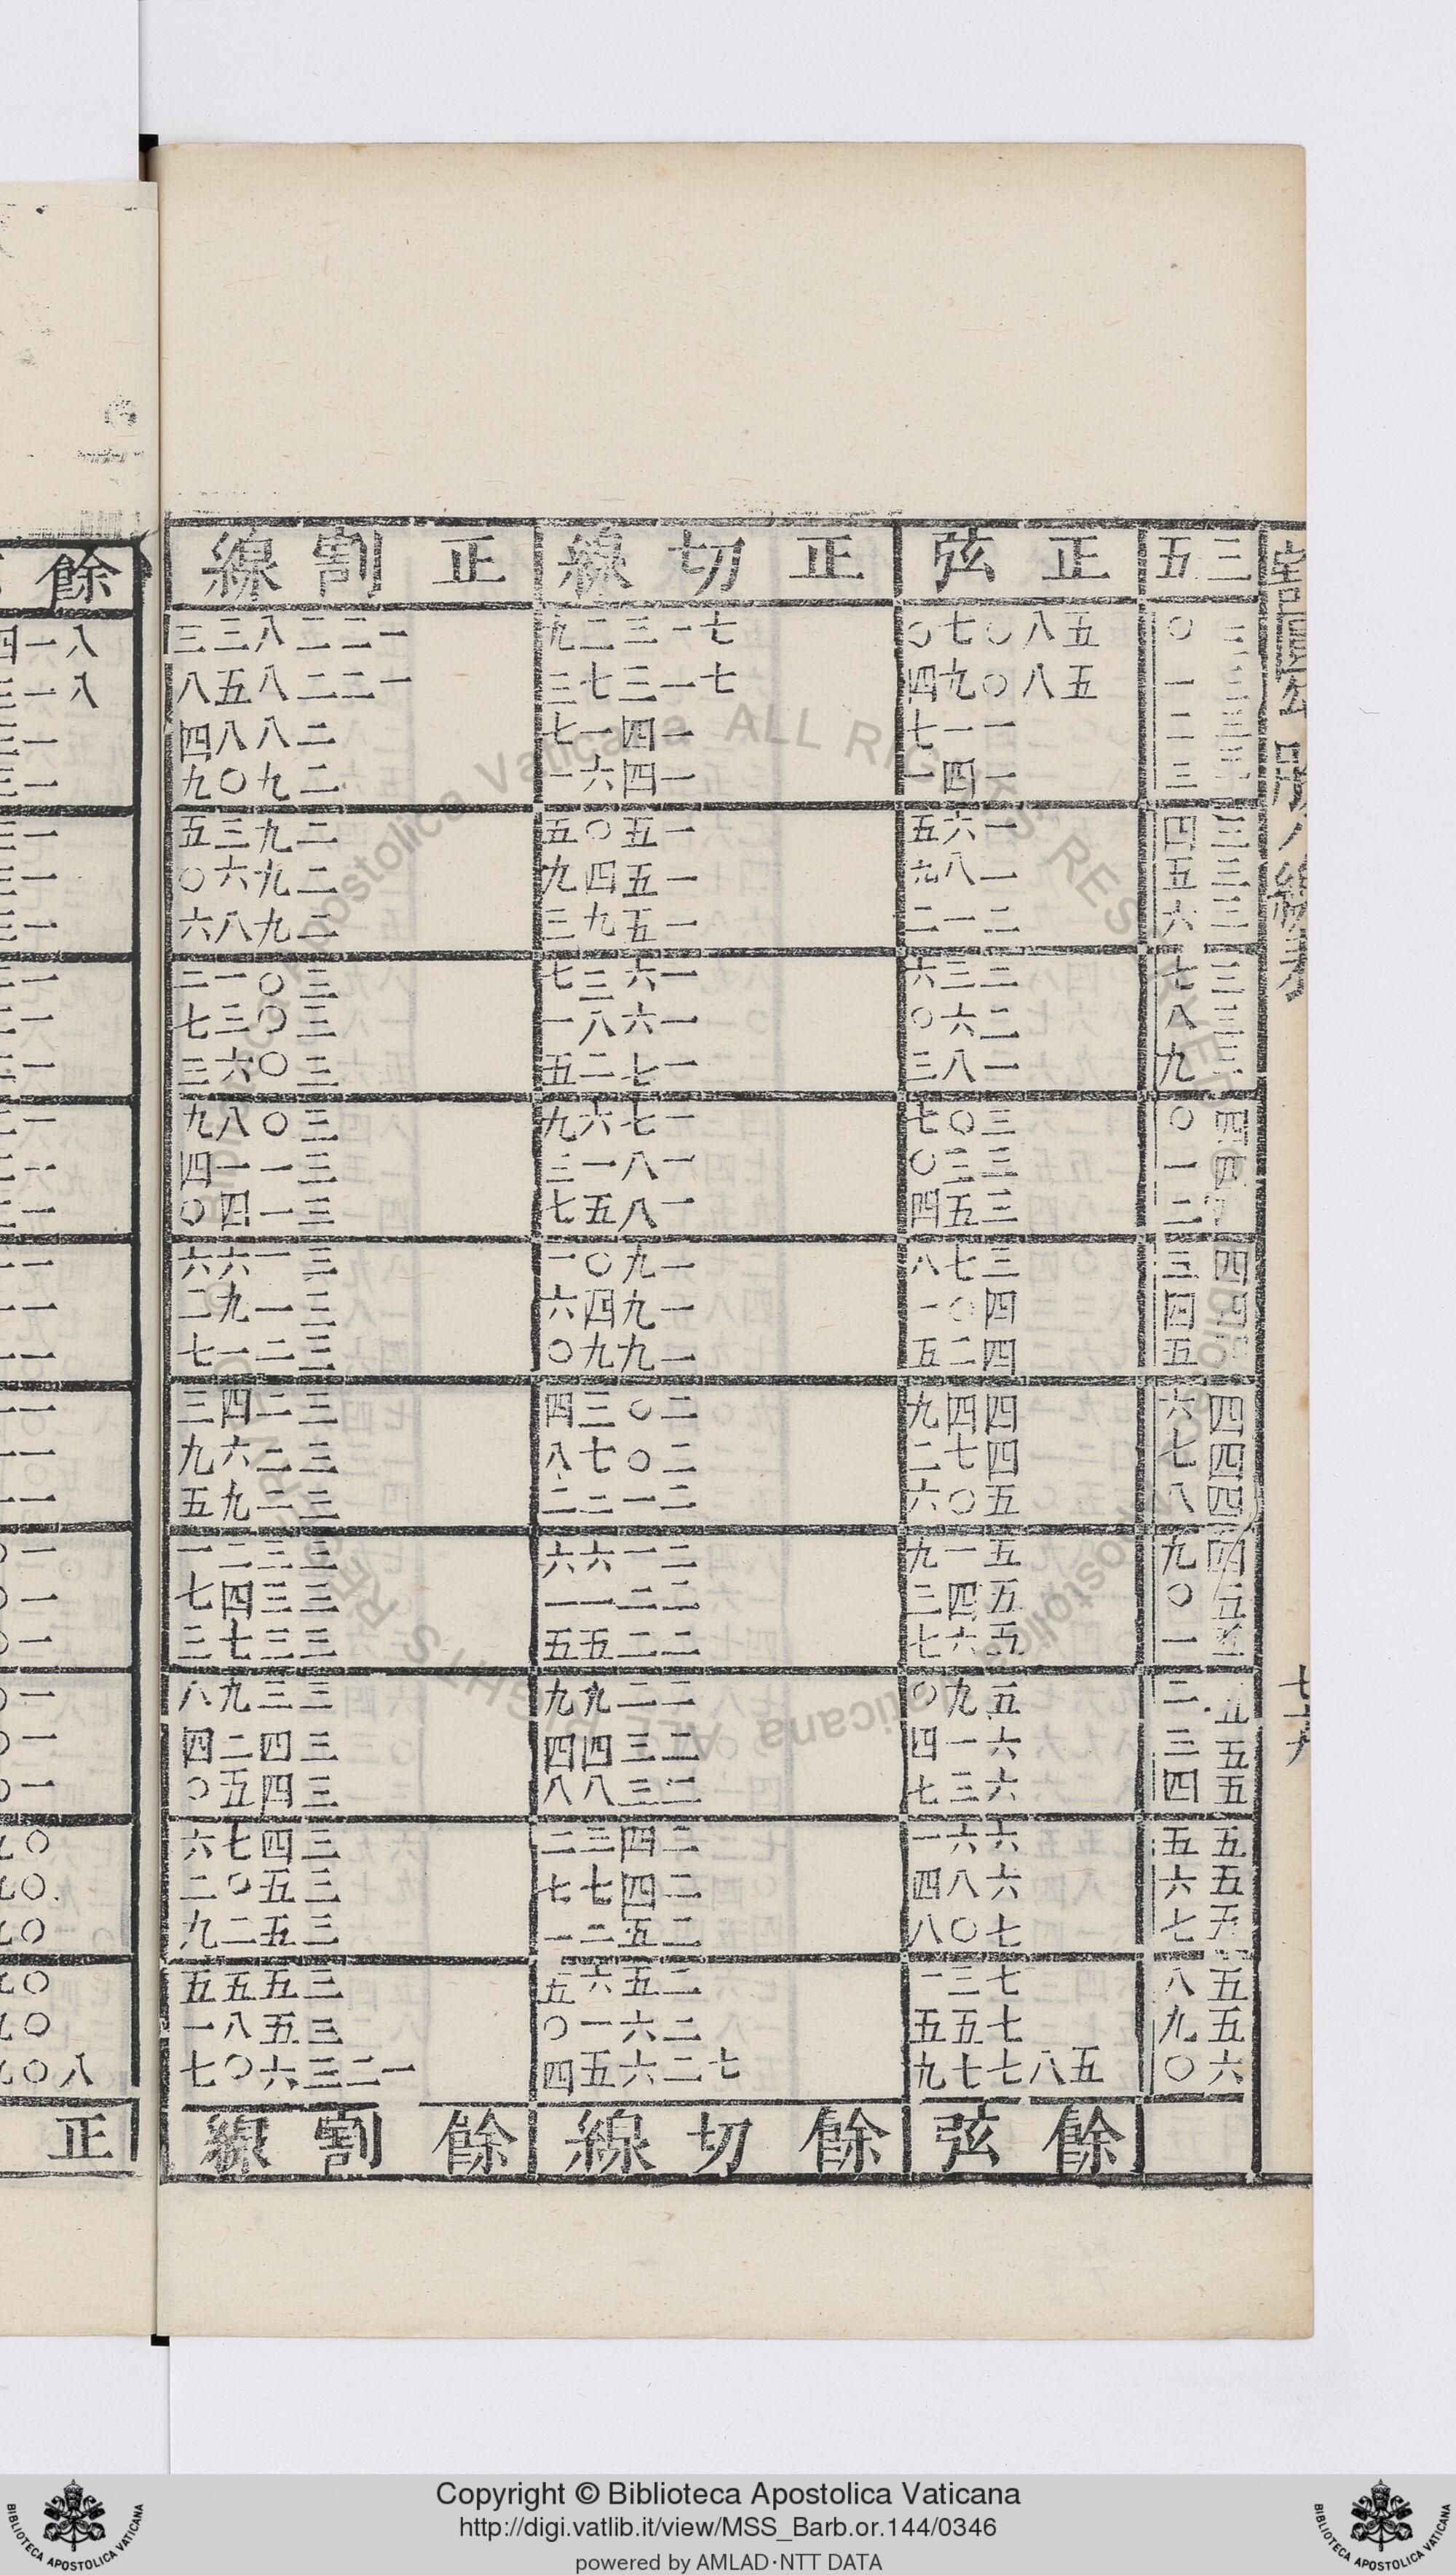 三五 正弦 正切線 正割線
三〇 五八〇七〇 七一三二九 一二二八三三
三一 五八〇九四 七一三七三 一二二八五八
三二 一一七 一四一七 二八八四
三三 一四一 一四六一 二九〇九
三四 一六五 一五〇五 二九三五
三五 一八九 一五四九 二九六〇
三六 二一二 一五九三 二九八六
三七 二三六 一六三七 三〇一二
三八 二六〇 一六八一 三〇三七
三九 一八三 一七二五 三〇六三
四〇 三〇七 一七六九 三〇八九
四一 三三〇 一八一三 三一一四
四二 三五四 一八五七 三一四〇
四三 三七八 一九〇一 三一六六
四四 四〇一 一九四六 三一九二
四五 四二五 一九九〇 三二一七
四六 四四九 二〇三四 三二四三
四七 四七二 二〇七八 三二六九
四八 五〇六 二一二二 三二九五
四九 五一九 二一六六 三三二一
五〇 五四三 二二一一 三三四七
五一 五六七 二二五五 三三七三
五二 五九〇 二二九九 三三九八
五三 六一四 二三四四 三四二四
五四 六三七 二三八八 三四五〇
五五 六六一 二四三二 三四七六
五六 六八四 二四七七 三五〇二
五七 七〇八 二五二一 三五二九
五八 七三一 二五六五 三五五五
五九 七五五 二六一〇 三五八一
六〇 五八七七九 七二六五四 一二三六〇七
餘弦 餘切線 餘割線
餘
正
Copyright © Biblioteca Apostolica Vaticana
http://digi.vatlib.it/view/MSS_Barb.or.144/0346
powered by AMLAD·NTT DATA
BIBLIOTECA APOSTOLICA VATICANA
BIBLIOTECA APOSTOLICA VATICANA